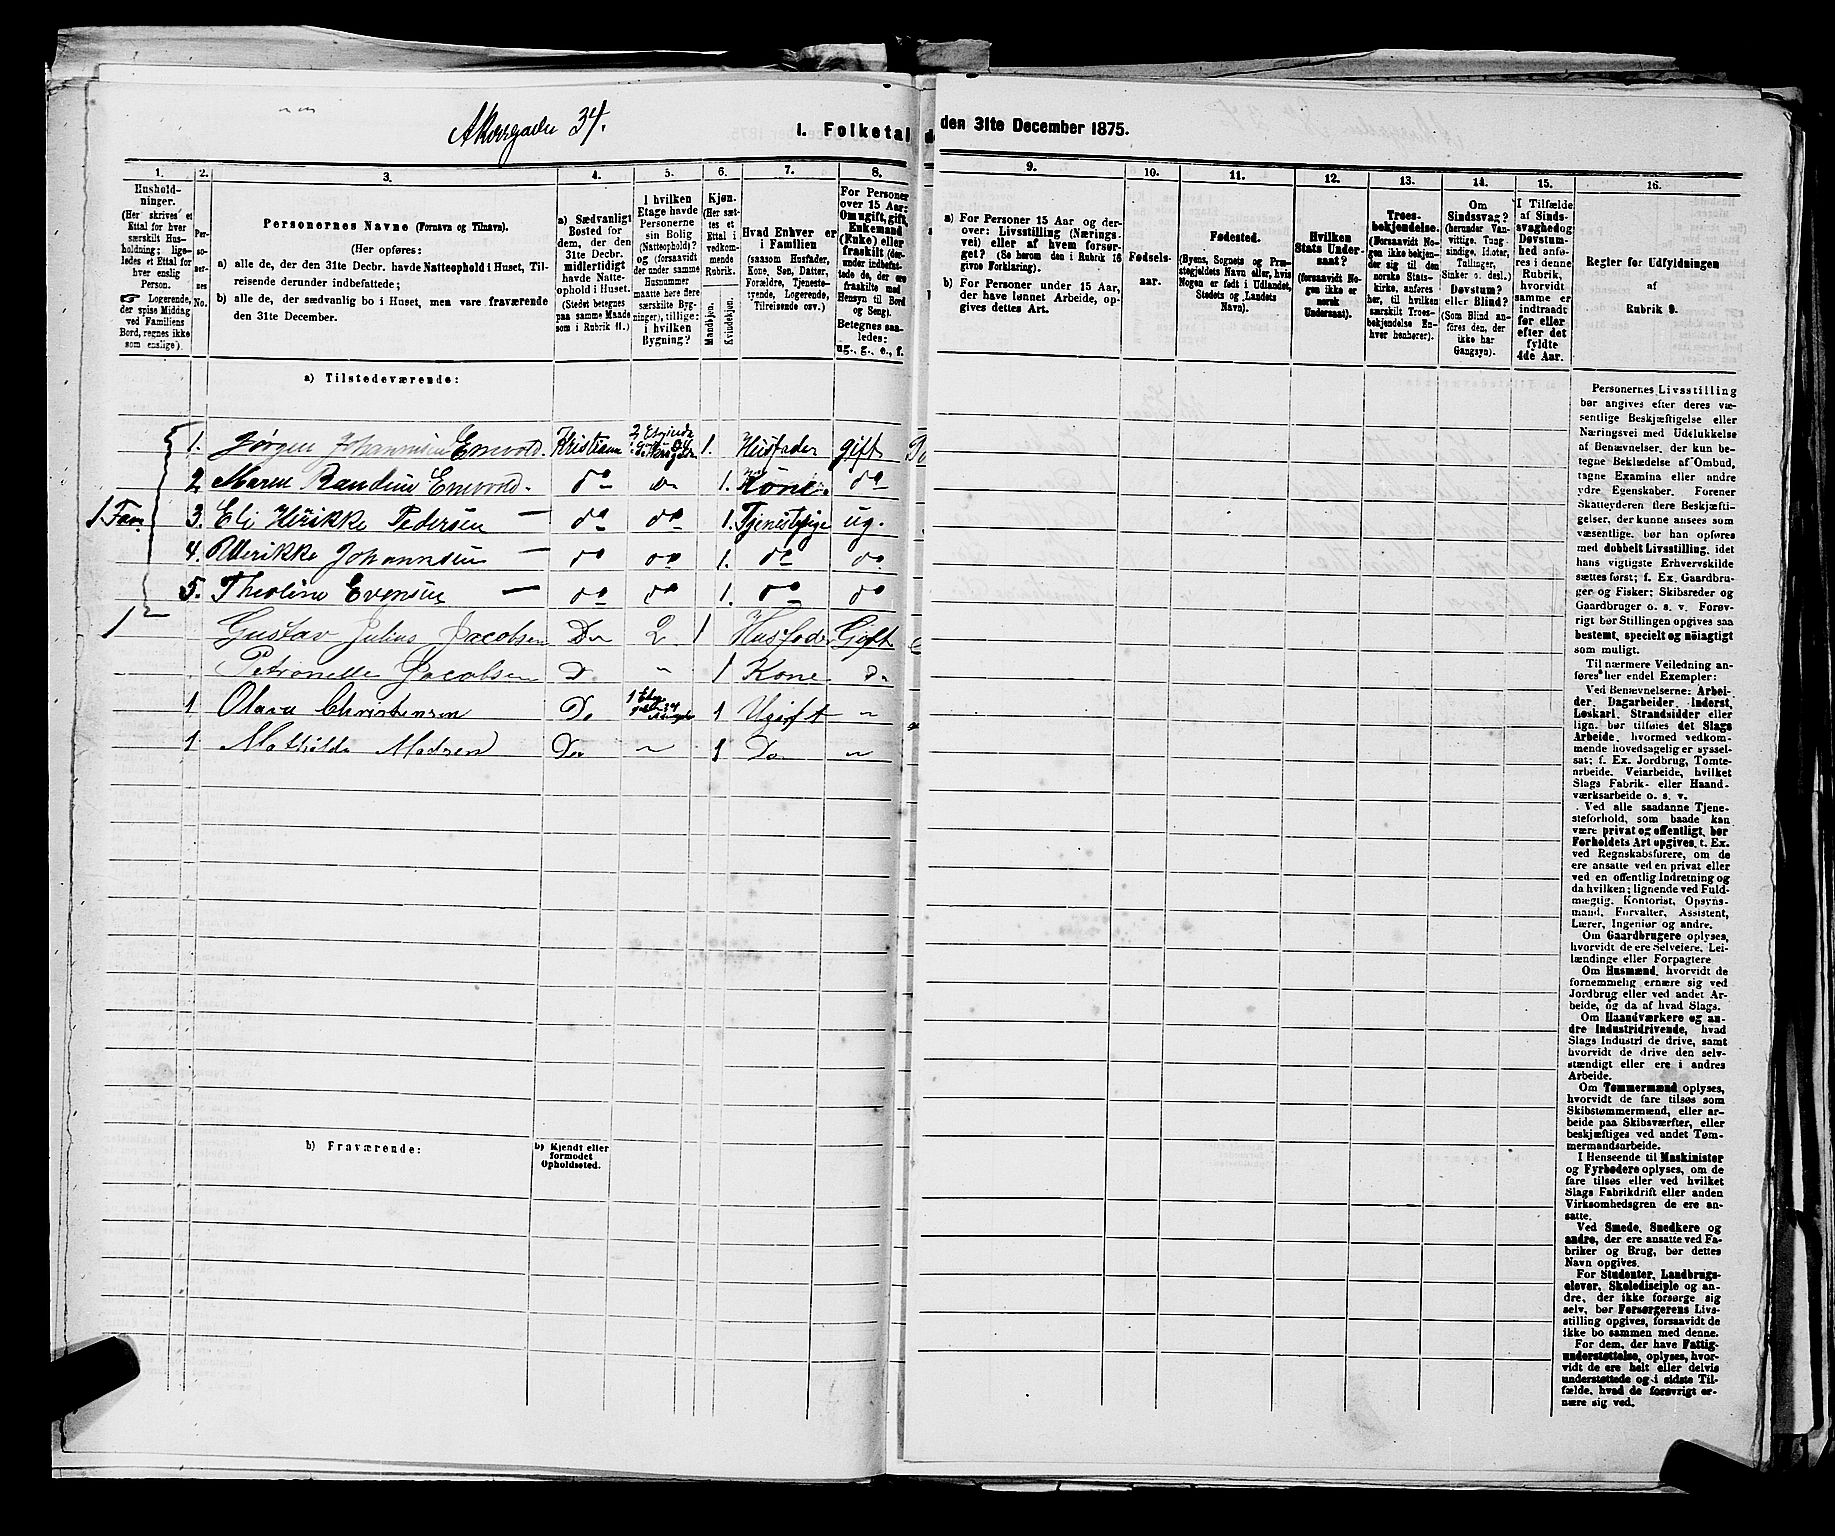 Akersgaden 34.
1. Folketal
den 31te December 1875.
1.
Hushold-
ninger.
(Her skrives et
Ettal for hver
særskilt Hus-
holdning; lige-
ledes et Ettal for
hver enslig
Person.
☞ Logerende,
der spise Middag
ved Familiens
Bord, regnes ikke
som enslige).
2.
Per-
so-
ner-
nes
No.
3.
Personernes Navne (Fornavn og Tilnavn).
(Her opføres:
a) alle de, der den 31te Decbr. havde Natteophold i Huset, Til-
reisende derunder indbefattede;
b) alle de, der sædvanlig bo i Huset, men vare fraværende
den 31te December.
4.
a) Sædvanligt
Bosted for
dem, der den
31te Decbr.
midlertidigt
havde Natte-
ophold i Huset.
(Stedet betegnes
paa samme Maade
som i Rubrik 11.)
5.
I hvilken
Etage havde
Personerne
sin Bolig
(Natteophold)?
og (forsaavidt
der under samme
Husnummer
maatte høre flere
særskilte Byg-
ninger), tillige:
i hvilken
Bygning?
6.
Kjøn.
(Her sæt-
tes et
Ettal i
vedkom-
mende
Rubrik.
Mandkjøn.
Kvindekjøn.
7.
Hvad Enhver er
i Familien
(saasom Husfader,
Kone, Søn, Datter,
Forældre, Tjeneste-
tyende, Logerende,
Tilreisende osv.)
8.
For Personer
over 15 Aar:
Om ugift, gift,
Enkemand
(Enke) eller
fraskilt (der-
under indbefat-
tede de, der ere
fraskilte med
Hensyn til Bord
og Seng).
Betegnes saa-
ledes:
ug., g., e., f.
9.
a) For Personer 15 Aar og der-
over: Livsstilling (Nærings-
vei) eller af hvem forsør-
get? (Se herom den i Rubrik 16
givne Forklaring).
b) For Personer under 15 Aar,
der have lønnet Arbeide, op-
gives dettes Art.
10.
Fødsels-
aar.
11.
Fødested.
(Byens, Sognets og Præ-
stegjeldets Navn eller, hvis
Nogen er født i Udlandet,
Stedets og Landets
Navn).
12.
Hvilken
Stats Under-
saat?
(forsaavidt No-
gen ikke er
norsk
Undersaat).
13.
Troes-
bekjendelse.
(Forsaavidt No-
gen ikke bekjen-
der sig til den
norske Stats-
kirke, anføres
her, til hvilket
særskilt Troes-
bekjendelse En-
hver henhører).
14.
Om
Sindssvag?
(herunder Van-
vittige, Tung-
sindige, Idioter,
Tullinger,
Sinker o. desl.)
Døvstum?
eller Blind?
(Som Blind an-
føres den, der
ikke har
Gangsyn).
15.
I Tilfælde
af Sinds-
svaghed og
Døvstum-
hed anfø-
res i denne
Rubrik,
hvorvidt
samme er
indtraadt
før eller
efter det
fyldte
4de Aar.
16.
Regler for Udfyldningen
af
Rubrik 9.
a) Tilstedeværende:
1. Jørgen Johannesen Enevold. Kristiania 1. Husfader gift
2. Maren Randine Enevold. do do 1. Kone. do
1 Fam 3. Eli Hinrikke Pedersen do do 1 Tjenestepige ug.
4. Ulrikke Johannesen — do do 1. do do
5. Theoline Evensen — do do 1. do do
1 Gustav Julius Jacobsen Do 2 1 Husfader Gift
Petronelle Jacobsen D. " 1 Kone do
1 Olava Christensen Do 1 Ugift "
1 Mathilde Madsen Do " 1 Do "
b) Fraværende:
b) Kjendt eller
formodet
Opholdssted.
Personernes Livsstilling
bør angives efter deres væ-
sentlige Beskjæftigelse eller
Næringsvei med Udelukkelse
af Benævnelser, der kun be-
tegne Beklædelse af Ombud,
tagne Examina eller andre
ydre Egenskaber. Forener
Skatteyderen flere Beskjæfti-
gelser, der kunne ansees som
væsentlige, bør han opføres
med dobbelt Livsstilling, idet
hans vigtigste Erhvervskilde
sættes først; f. Ex. Gaardbru-
ger og Fisker; Skibsreder og
Gaardbruger o. s. v. Forøv-
rigt bør Stillingen opgives saa
bestemt, specielt og nøiagtigt
som muligt.
Til nærmere Veiledning an-
føres her endel Exempler:
Ved Benævnelserne: Arbei-
der, Dagarbeider, Inderst,
Løskarl, Strandsidder eller
lign. bør tilføies det Slags
Arbeide, hvormed vedkom-
mende hovedsagelig er syssel-
sat; f. Ex. Jordbrug, Tomte-
arbeide, Veiarbeide, hvilket
Slags Fabrik- eller Haand-
værksarbeide o. s. v.
Ved alle saadanne Tjene-
steforhold, som baade kan
være privat og offentligt, bør
Forholdets Art opgives, t. Ex.
ved Regnskabsførere, om de
ere ansatte ved en privat eller
ved en offentlig Indretning og
da hvilken; lignende ved Fuld-
mægtig, Kontorist, Opsyns-
mand, Forvalter, Assistent,
Lærer, Ingeniør og andre.
Om Gaardbrugere oplyses,
hvorvidt de ere Selveiere, Lei-
lændinge eller Forpagtere
Om Husmænd, hvorvidt de
fornemmelig ernære sig ved
Jordbrug eller ved andet Ar-
beide, og da af hvad Slags.
Om Haandværkere og an-
dre Industridrivende, hvad
Slags Industri de drive, samt
hvorvidt de drive den selv-
stændigt eller ere i andres
Arbeide.
Om Tømmermænd oplyses,
hvorvidt de fare tilsøs som
Skibstømmermænd, eller ar-
beide paa Skibsværfter, eller
beskjæftiges ved andet Tøm-
mermandsarbeide.
I Henseende til Maskinister
og Fyrbødere oplyses, om de
fare tilsøs eller ved hvilket
Slags Fabrikdrift eller anden
Virksomhedsgren de ere an-
satte.
Ved Smede, Snedkere og
andre, der ere ansatte ved Fa-
briker og Brug, bør dettes
Navn opgives.
For Studenter, Landbrugs-
elever, Skoledisciple og an-
dre, der ikke forsørge sig
selv, bør Forsørgerens Livs-
stilling opgives, forsaavidt de
ikke bo sammen med denne.
For dem, der have Fattig-
understøttelse, oplyses, hvor-
vidt de ere helt eller delvis
understøttede og i sidste Til-
fælde, hvad de forøvrigt er-
nære sig ved.